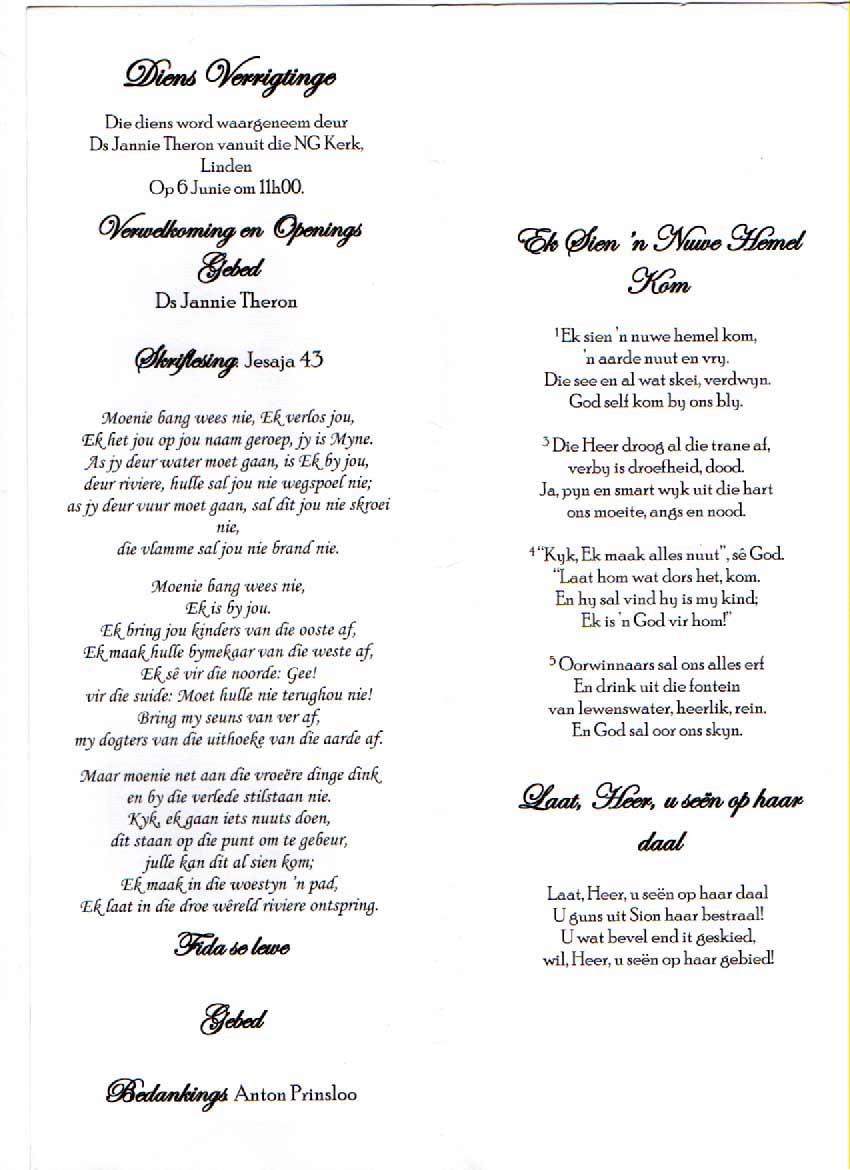 Diens Verrigtinge
Die diens word waargeneem deur
Ds Jannie Theron vanuit die NG Kerk,
Linden
Op 6 Junie om 11h00.
Verwelkoming en Openings
Gebed
Ds Jannie Theron
Skriflesing: Jesaja 43
Moenie bang wees nie, Ek verlos jou,
Ek het jou op jou naam geroep, jy is Myne.
As jy deur water moet gaan, is Ek by jou,
deur riviere, hulle sal jou nie wegspoel nie;
as jy deur vuur moet gaan, sal dit jou nie skroei
nie,
die vlamme sal jou nie brand nie.
Moenie bang wees nie,
Ek is by jou.
Ek bring jou kinders van die ooste af,
Ek maak hulle bymekaar van die weste af,
Ek sê vir die noorde: Gee!
vir die suide: Moet hulle nie terughou nie!
Bring my seuns van ver af,
my dogters van die uithoeke van die aarde af.
Maar moenie net aan die vroeëre dinge dink
en by die verlede stilstaan nie.
Kyk, ek gaan iets nuuts doen,
dit staan op die punt om te gebeur,
julle kan dit al sien kom;
Ek maak in die woestyn 'n pad,
Ek laat in die droe wêreld riviere ontspring.
Fida se lewe
Gebed
Bedankings: Anton Prinsloo
Ek Sien 'n Nuwe Hemel
Kom
1Ek sien 'n nuwe hemel kom,
'n aarde nuut en vry.
Die see en al wat skei, verdwyn.
God self kom by ons bly.
3 Die Heer droog al die trane af,
verby is droefheid, dood.
Ja, pyn en smart wyk uit die hart
ons moeite, angs en nood.
4 "Kyk, Ek maak alles nuut", sê God.
"Laat hom wat dors het, kom.
En hy sal vind hy is my kind;
Ek is 'n God vir hom!"
5 Oorwinnaars sal ons alles erf
En drink uit die fontein
van lewenswater, heerlik, rein.
En God sal oor ons skyn.
Laat, Heer, u seën op haar
daal
Laat, Heer, u seën op haar daal
U guns uit Sion haar bestraal!
U wat bevel end it geskied,
wil, Heer, u seën op haar gebied!